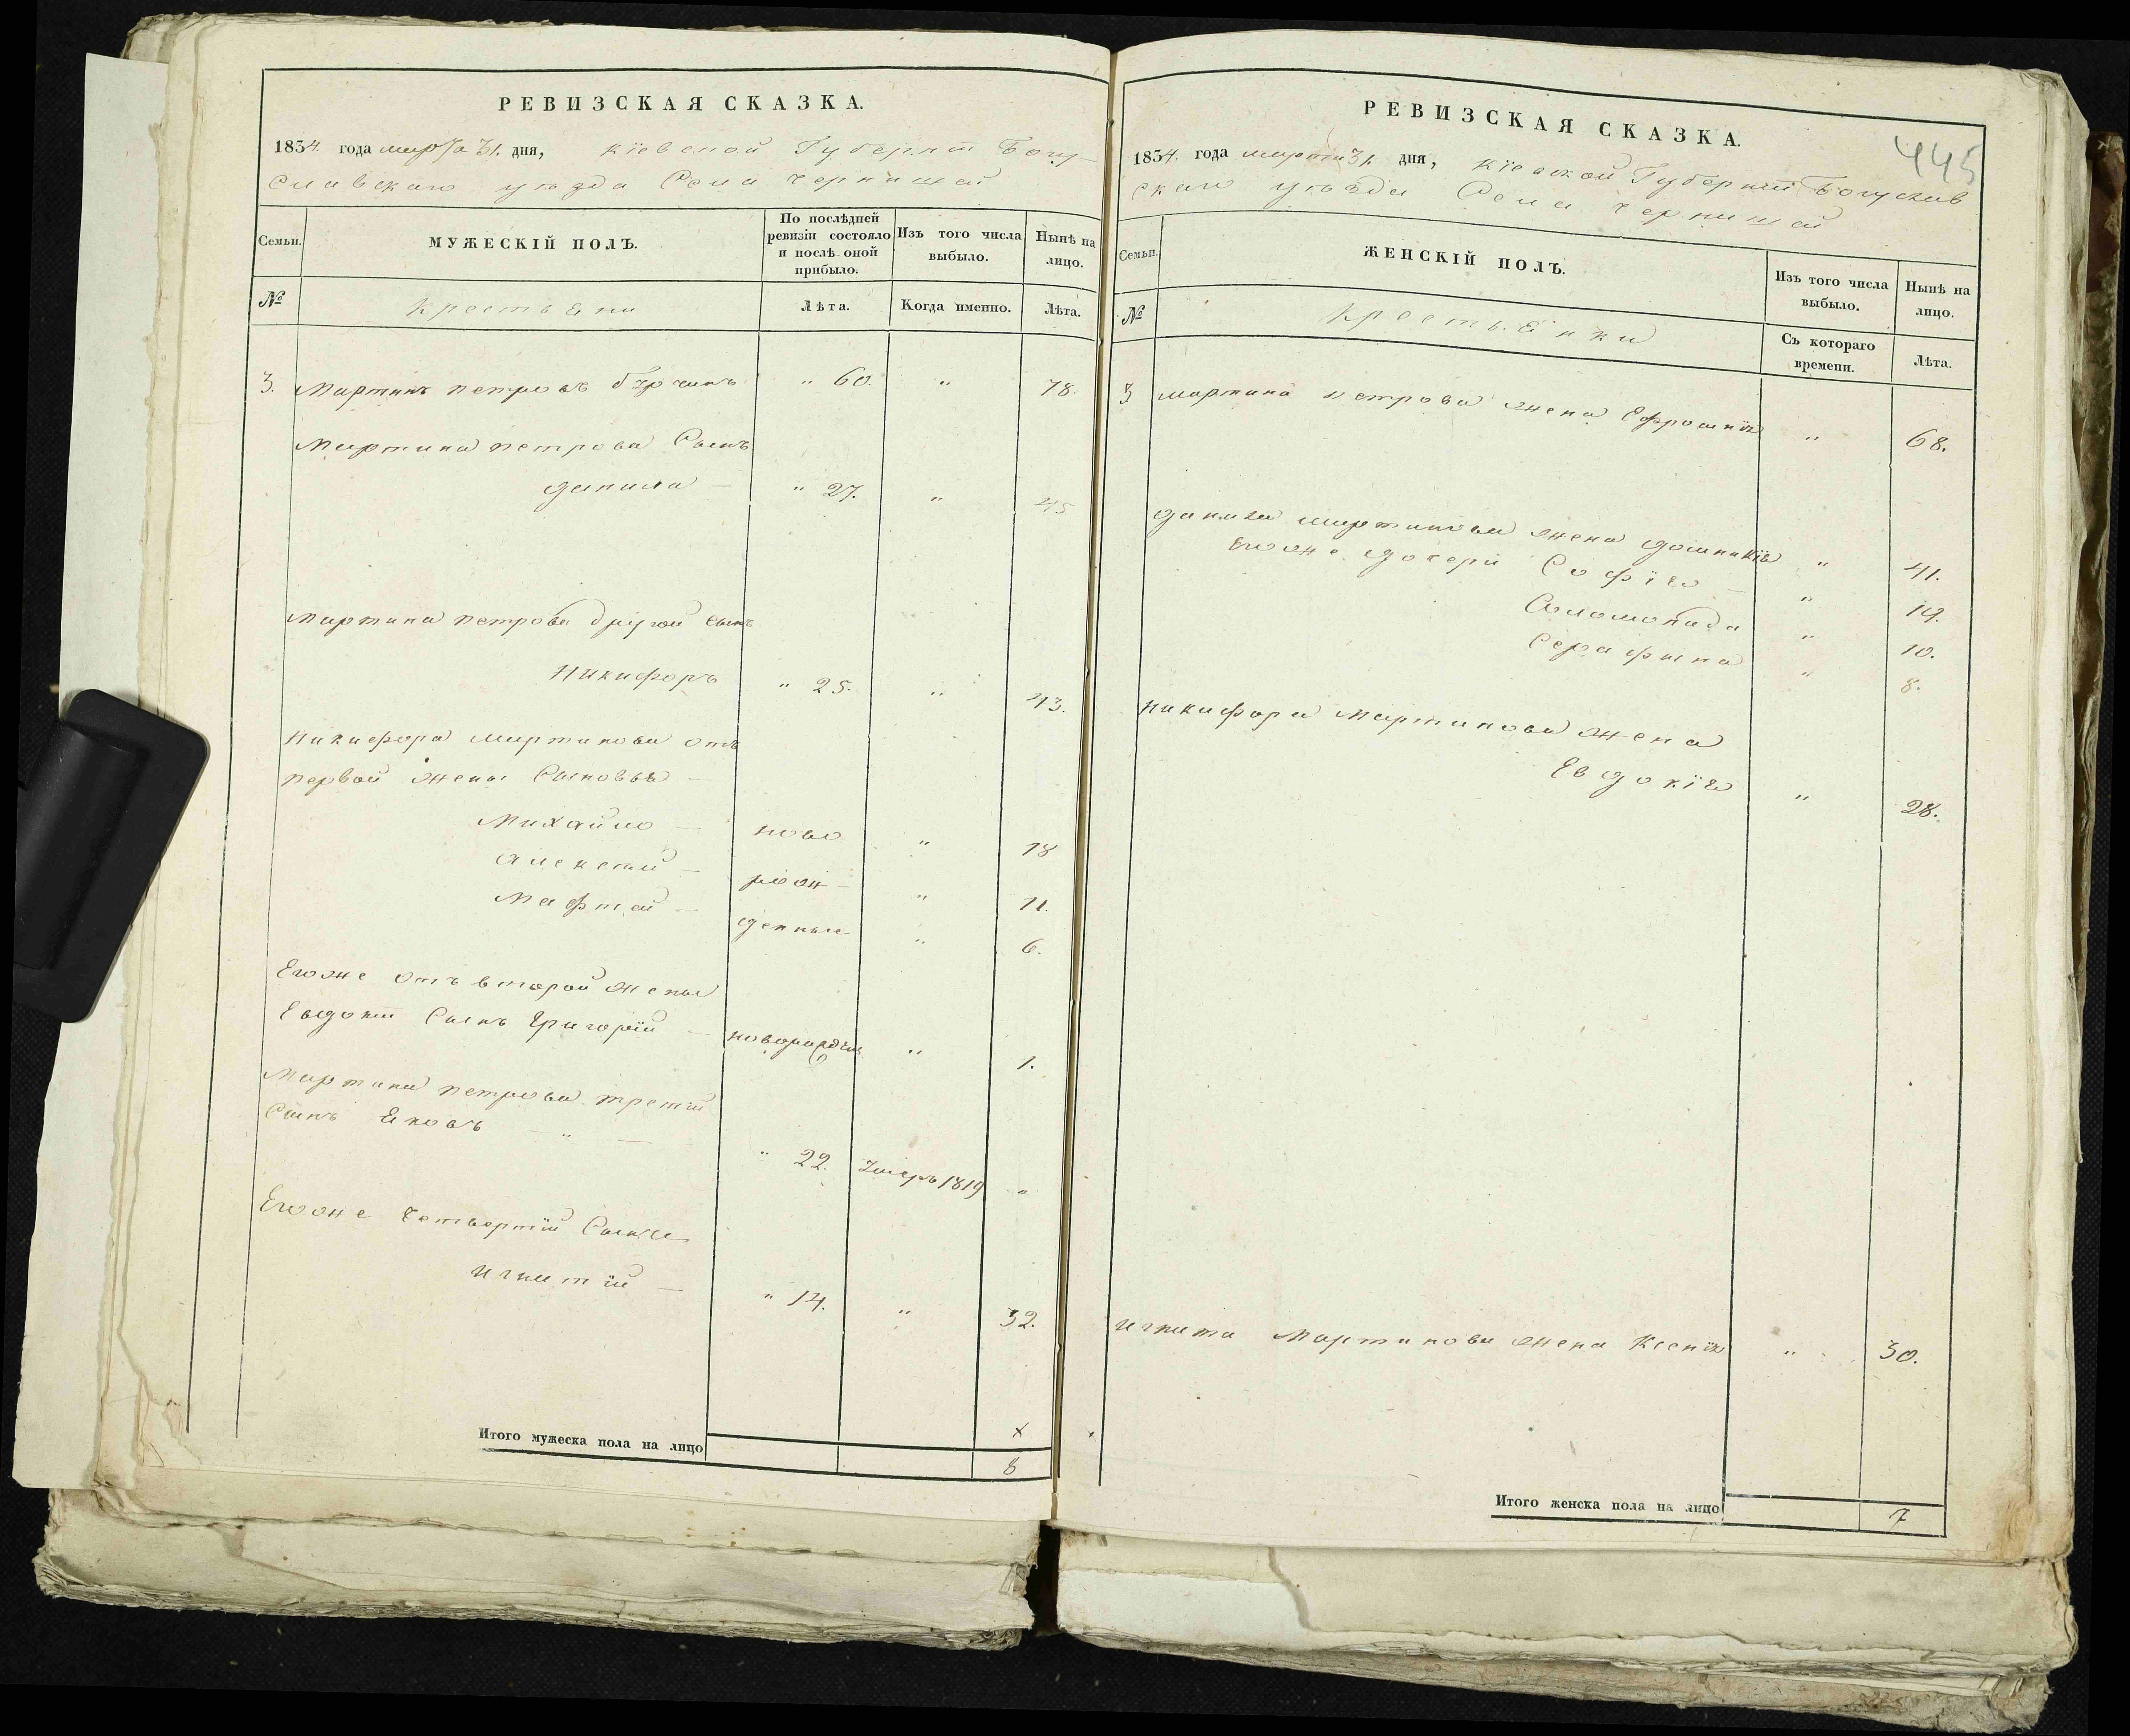 РЕВИЗСКАЯ СКАЗКА.
1834. года марта 31. дня, Кіевской Губерніи Богу-
славскаго уезда Села Чернишей
Семьи.
МУЖЕСКІЙ ПОЛЪ.
По послѣдней
ревизіи состояло
и послѣ оной
прибыло.
Изъ того числа
выбыло.
Нынѣ на
лицо.
№
Крестьяни
Лѣта.
Когда именно.
Лѣта.
3. Мартинъ Петровъ " 60. " 78.
Мартина Петрова Сынъ
Данила — " 27. " 45
Мартина Петрова другой сынъ
Никифоръ " 25. " 43.
Никифора Мартинова отъ
первой жены Сыновья —
Михайло — ново " 18
Алексей — рож- " 11.
Мафтей — денные " 6.
Егоже отъ второй жены
Евдокіи Сынъ Григорій — новорожден " 1.
Мартина Петрова третій
Сынъ Яковъ — " — " 22. Умеръ 1819 "
Егоже Четвертій Сынъ
Игнатій — " 14. " 32.
х
Итого мужеска пола на лицо
8
РЕВИЗСКАЯ СКАЗКА.
445
1834. года марта 31. дня, Кіевской Губерніи Богуслав
скаго уезда Села Чернишей
Семьи.
ЖЕНСКІЙ ПОЛЪ.
Изъ того числа
выбыло.
Нынѣ на
лицо.
№
Крестьянки
Съ котораго
времени.
Лѣта.
3 Мартина Петрова жена Ефросинія " 68.
Данила Мартинова жена Домникія " 41.
Егоже дочери Софія — " 19.
Соломонида " 10.
Серафина " 8.
Никифора Мартинова жена
Евдокія " 28.
Игната Мартинова жена Ксенія " 30.
Итого женска пола на лицо
7